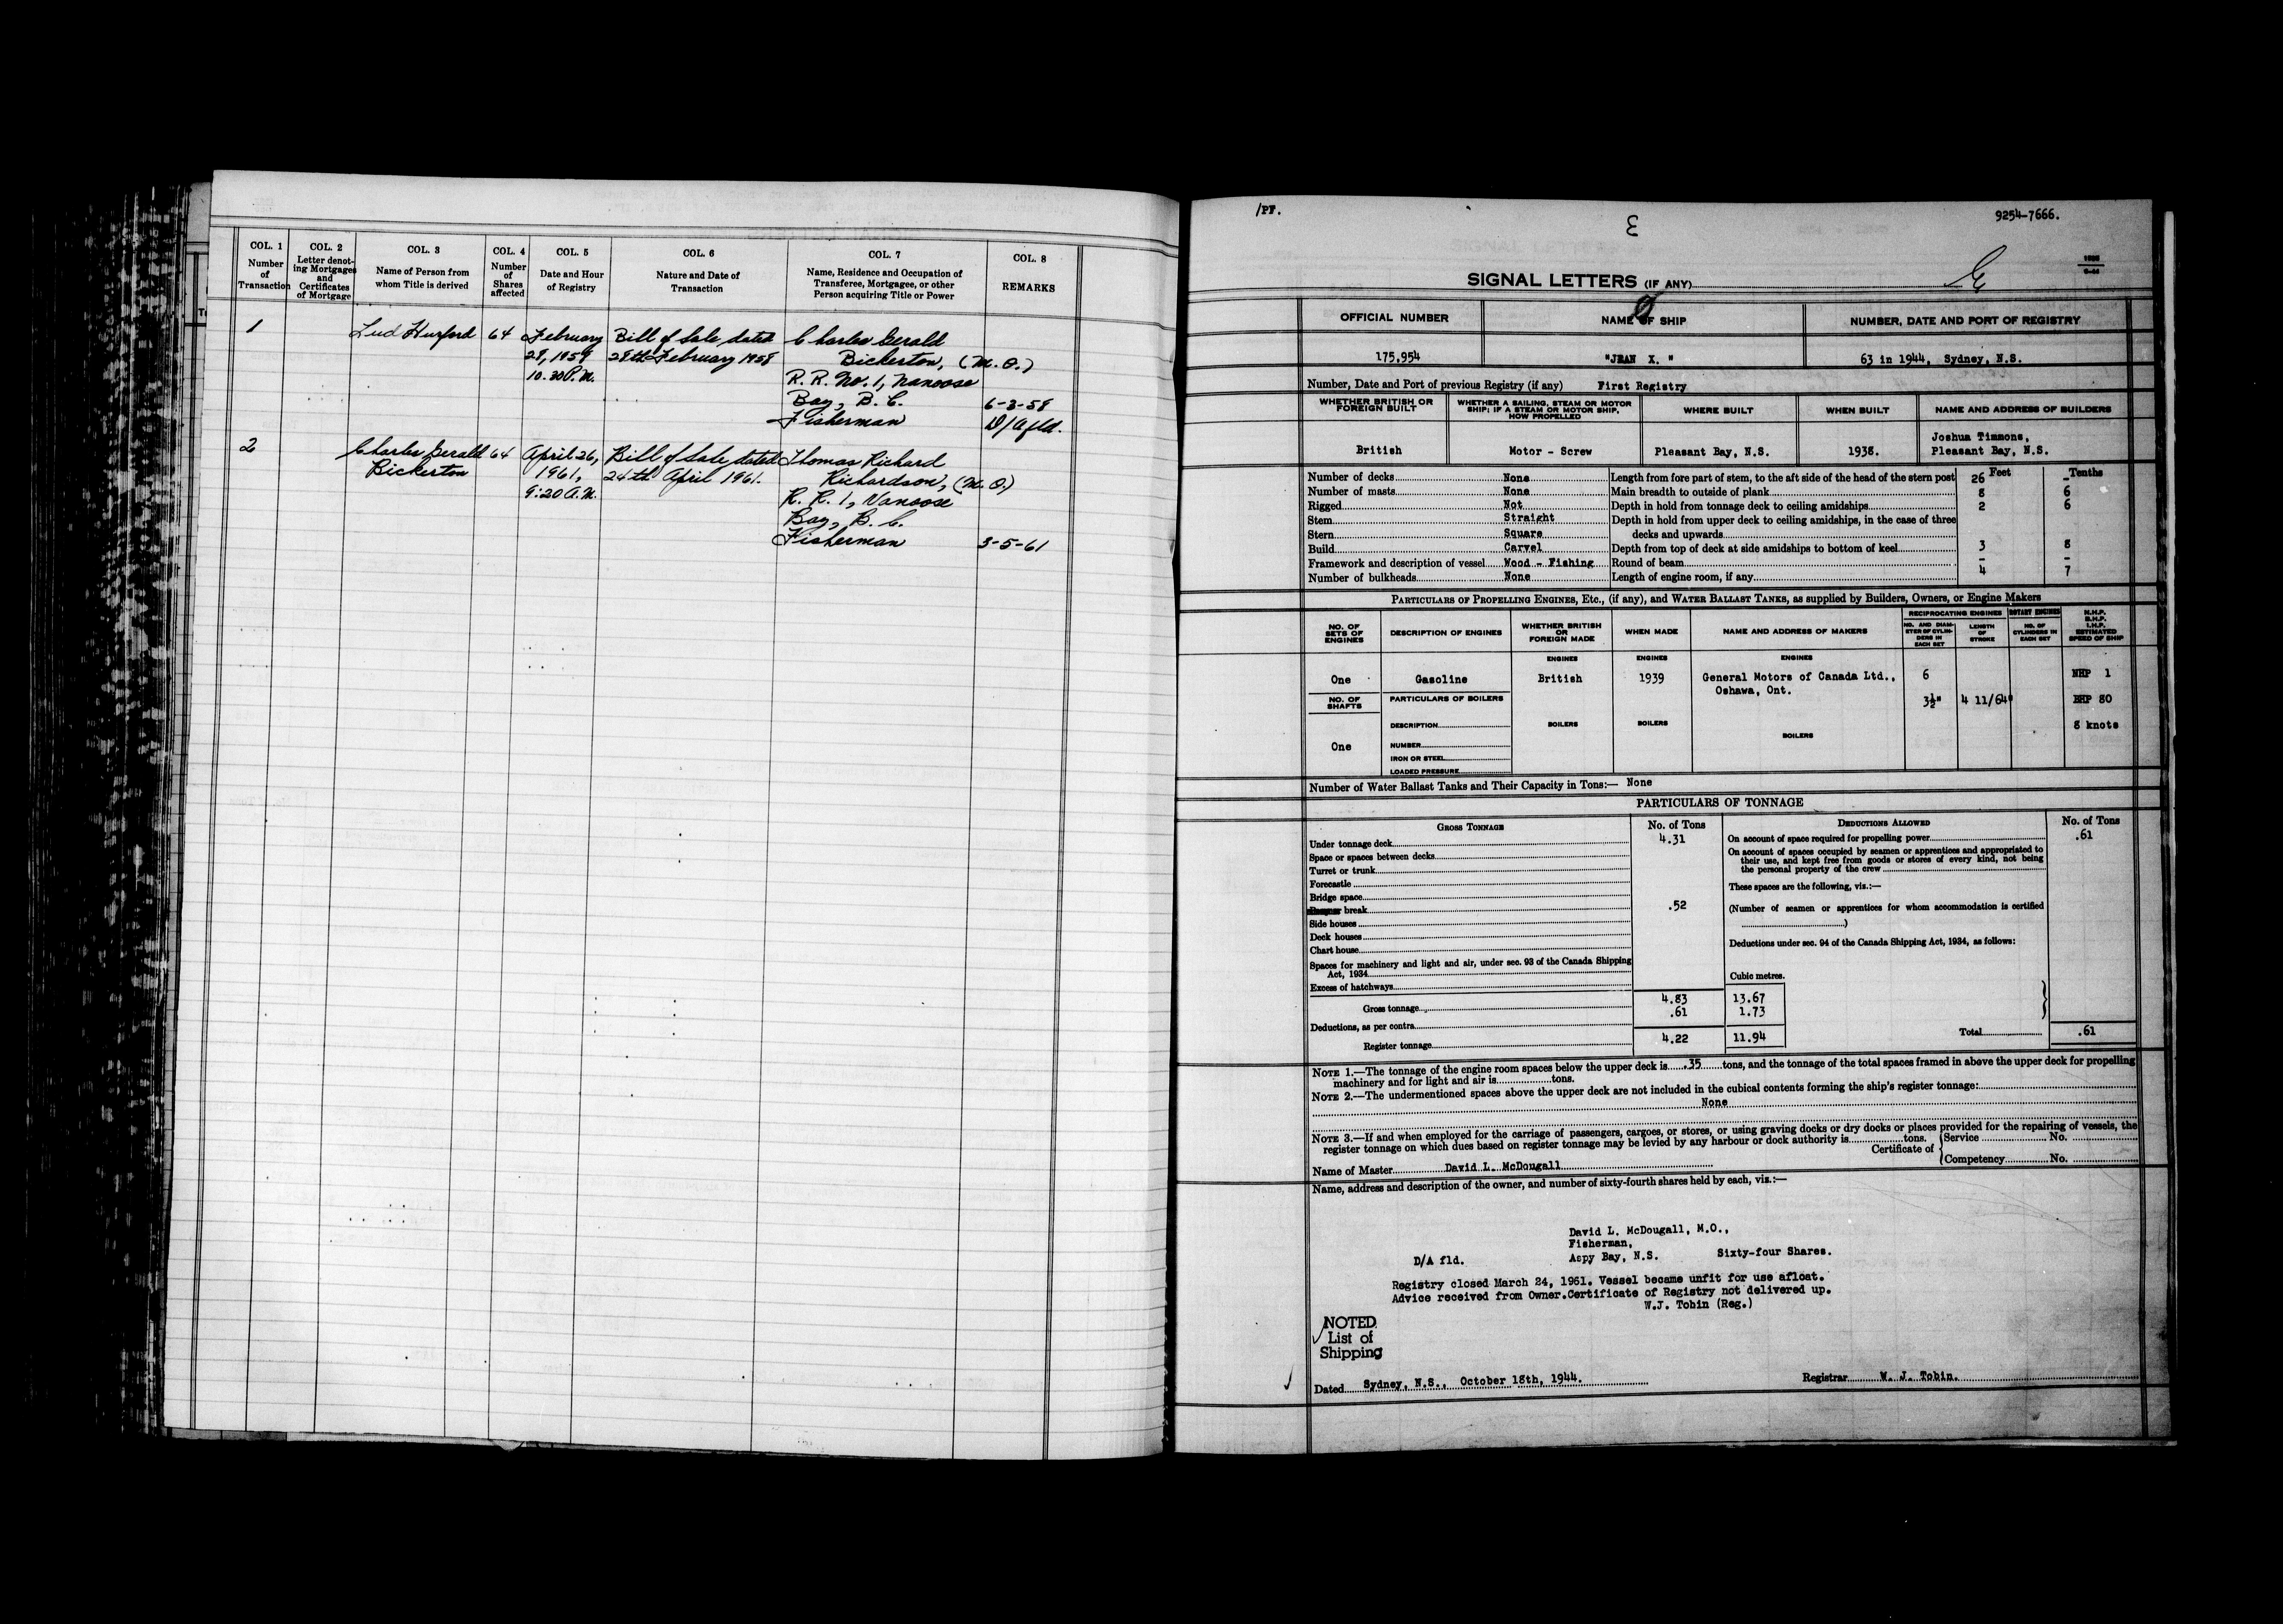 COL. 1
Number
of
Transaction
COL. 2
Letter denot-
ing Mortgages
and
Certificates
of Mortgage
COL. 3
Name of Person from
whom Title is derived
COL. 4
Number
of
Shares
affected
COL. 5
Date and Hour
of Registry
COL. 6
Nature and Date of
Transaction
COL. 7
Name, Residence and Occupation of
Transferee, Mortgagee, or other
Person acquiring Title or Power
COL. 8
REMARKS
1
Lud Hurford
64
February
28, 1958
10.30 P.M.
Bill of Sale dated
28th February 1958
Charles Gerald
Bickerton, (M.O.)
R. R. No. 1, Nanoose
Bay, B. C.
Fisherman
6-3-58
D/A fld.
2
Charles Gerald
Bickerton
64
April 26,
1961,
9:20 A.M.
Bill of Sale dated
24th April 1961.
Thomas Richard
Richardson, (M.O.)
R. R. 1, Nanoose
Bay, B. C.
Fisherman
3-5-61
/PF.
9254-7666.
SIGNAL LETTERS (IF ANY)
OFFICIAL NUMBER
NAME OF SHIP
NUMBER, DATE AND PORT OF REGISTRY
175,954
"JEAN X. "
63 in 1944, Sydney, N.S.
Number, Date and Port of previous Registry (if any) First Registry
WHETHER BRITISH OR
FOREIGN BUILT
WHETHER A SAILING, STEAM OR MOTOR
SHIP; IF A STEAM OR MOTOR SHIP,
HOW PROPELLED
WHERE BUILT
WHEN BUILT
NAME AND ADDRESS OF BUILDERS
British
Motor - Screw
Pleasant Bay, N.S.
1938.
Joshua Timmons,
Pleasant Bay, N.S.
Feet Tenths
Number of decks None
Length from fore part of stem, to the aft side of the head of the stern post 26 -
Number of masts None
Main breadth to outside of plank 8 6
Rigged Not
Depth in hold from tonnage deck to ceiling amidships 2 6
Stem Straight
Depth in hold from upper deck to ceiling amidships, in the case of three
Stern Square
decks and upwards
Build Carvel
Depth from top of deck at side amidships to bottom of keel 3 8
Framework and description of vessel Wood - Fishing
Round of beam - -
Number of bulkheads None
Length of engine room, if any 4 7
PARTICULARS OF PROPELLING ENGINES, ETC., (if any), and WATER BALLAST TANKS, as supplied by Builders, Owners, or Engine Makers
NO. OF
SETS OF
ENGINES
DESCRIPTION OF ENGINES
WHETHER BRITISH
OR
FOREIGN MADE
WHEN MADE
NAME AND ADDRESS OF MAKERS
RECIPROCATING ENGINES
NO. AND DIAM-
ETER OF CYLIN-
DERS IN
EACH SET
LENGTH
OF
STROKE
ROTARY ENGINES
NO. OF
CYLINDERS IN
EACH SET
N.H.P.
B.H.P.
I.H.P.
ESTIMATED
SPEED OF SHIP
ENGINES
ENGINES
ENGINES
One
Gasoline
British
1939
General Motors of Canada Ltd.,
Oshawa, Ont.
6
3½"
4 11/64"
NHP 1
BHP 80
8 knots
NO. OF
SHAFTS
One
PARTICULARS OF BOILERS
DESCRIPTION
NUMBER
IRON OR STEEL
LOADED PRESSURE
BOILERS
BOILERS
BOILERS
Number of Water Ballast Tanks and Their Capacity in Tons:— None
PARTICULARS OF TONNAGE
GROSS TONNAGE
No. of Tons
DEDUCTIONS ALLOWED
No. of Tons
Under tonnage deck 4.31
Space or spaces between decks
Turret or trunk
Forecastle
Bridge space
break .52
Side houses
Deck houses
Chart house
Spaces for machinery and light and air, under sec. 93 of the Canada Shipping
Act, 1934
Excess of hatchways
Gross tonnage 4.83 13.67
Deductions, as per contra .61 1.73
Register tonnage 4.22 11.94
On account of space required for propelling power .61
On account of spaces occupied by seamen or apprentices and appropriated to
their use, and kept free from goods or stores of every kind, not being
the personal property of the crew
These spaces are the following, viz.:—
(Number of seamen or apprentices for whom accommodation is certified
)
Deductions under sec. 94 of the Canada Shipping Act, 1934, as follows:
Cubic metres.
Total .61
NOTE 1.—The tonnage of the engine room spaces below the upper deck is .35 tons, and the tonnage of the total spaces framed in above the upper deck for propelling
machinery and for light and air is tons.
NOTE 2.—The undermentioned spaces above the upper deck are not included in the cubical contents forming the ship's register tonnage:
None
NOTE 3.—If and when employed for the carriage of passengers, cargoes, or stores, or using graving docks or dry docks or places provided for the repairing of vessels, the
register tonnage on which dues based on register tonnage may be levied by any harbour or dock authority is tons.
Certificate of
Service No.
Competency No.
Name of Master David L. McDougall
Name, address and description of the owner, and number of sixty-fourth shares held by each, viz.:—
David L. McDougall, M.O.,
Fisherman,
D/A fld. Aspy Bay, N.S. Sixty-four Shares.
Registry closed March 24, 1961. Vessel became unfit for use afloat.
Advice received from Owner.Certificate of Registry not delivered up.
W.J. Tobin (Reg.)
NOTED
List of
Shipping
Dated Sydney, N.S., October 18th, 1944.
Registrar W. J. Tobin.